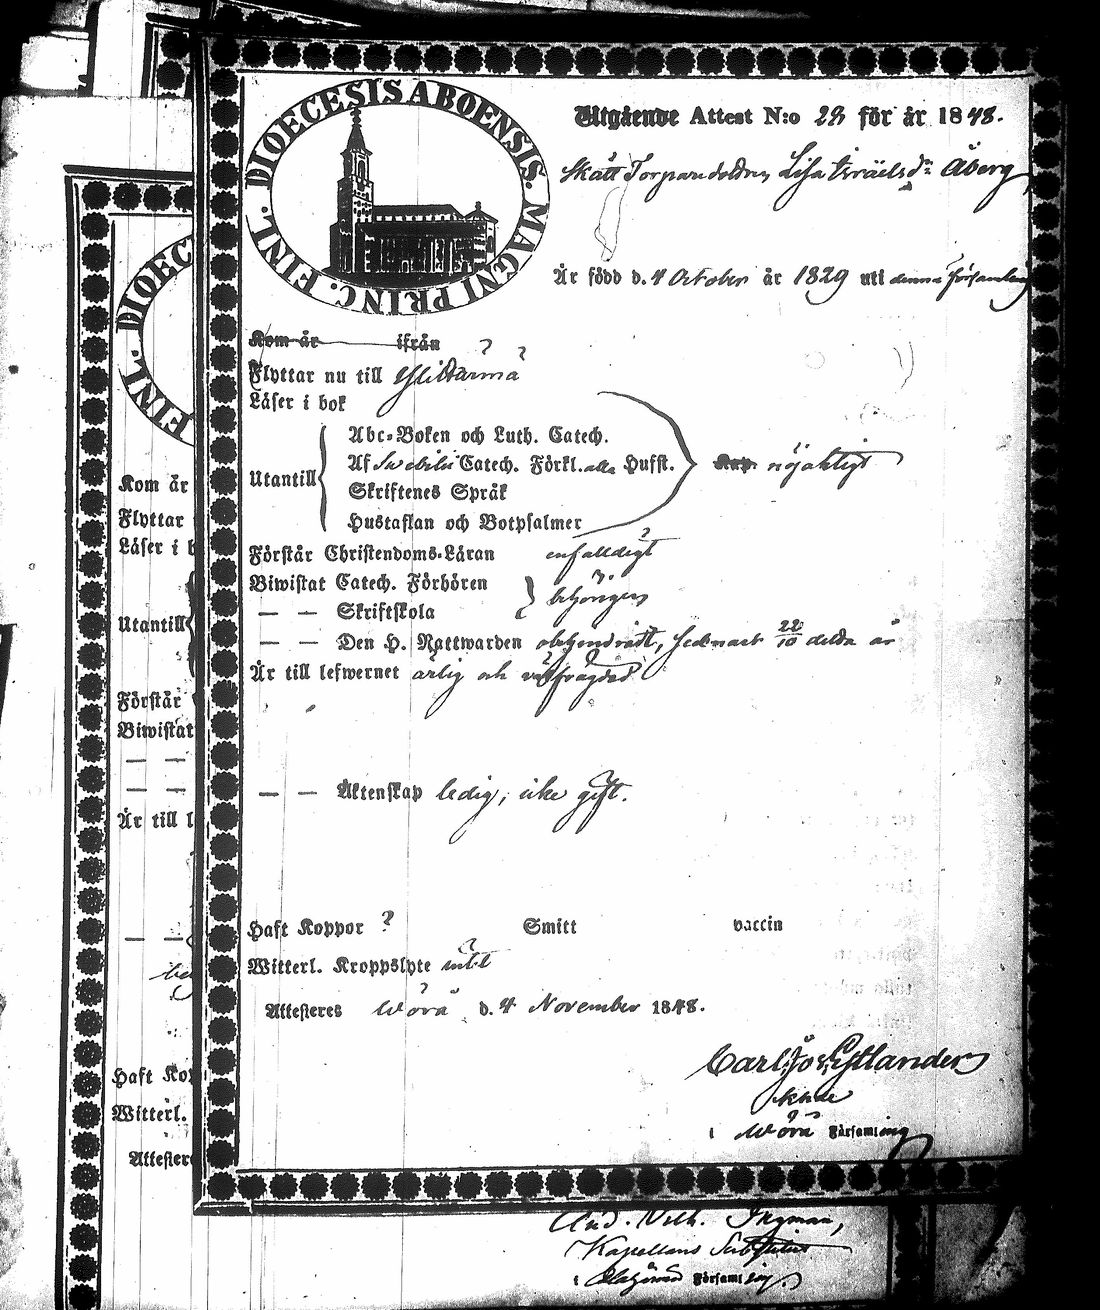 DIOECESIS ABOENSIS. MAGNI PRINC. FINL.
Utgående Attest N:o 28 för år 1848.
Skatt Torparedottren Lisa Israelsdr: Åberg
Är född d. 4 October år 1829 uti denna församling
Kom år ifrån
Flyttar nu till Ylistarma
Läser i bok
Abc-Boken och Luth. Catech.
Utantill Af Svebilii Catech. Förkl. alla Hufst. nöjaktigt
Skriftenes Språk
Hustaflan och Botpsalmer
Förstår Christendoms-Läran enfalldigt
Biwistat Catech. Förhören
— — Skriftskola behörigen
— — Den H. Nattwarden obehindradt, sednast 22/10 detta år
Är till lefwernet ärlig och välfrägdad
— — Äktenskap ledig, icke gift.
Haft Koppor ? Smitt vaccin
Witterl. Kroppslyte intet
Attesteras Wörå d. 4 November 1848.
Carl Jos. Estlander
i Wörå Församling
DIOEC
FINL.
Kom år
Flyttar
Läser i b
Utantill
Förstår
Biwistat
— —
— —
Är till l
— —
Haft Ko
Witterl.
Attester
And. Wilh. Ingman,
Kapellans Substitut
i Församling